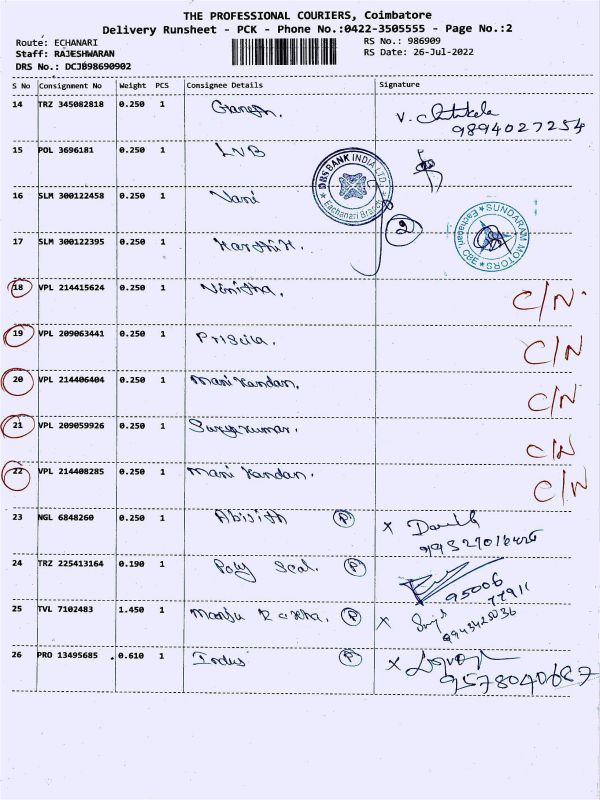 THE PROFESSIONAL COURIERS, Coimbatore
Delivery Runsheet - PCK - Phone No.:0422-3505555 - Page No.:2
Route: ECHANARI
Staff: RAJESHWARAN
DRS No.: DCJB98690902
RS No.: 986909
RS Date: 26-Jul-2022
S No Consignment No Weight PCS Consignee Details Signature
14 TRZ 345082818 0.250 1 Ganesh. V.
9894027254
15 POL 3696181 0.250 1 LVB
DBS BANK INDIA LTD.
Eachanari Branch
16 SLM 300122458 0.250 1 Vani
2
SUNDARAM MOTORS
Eachanari CBE
17 SLM 300122395 0.250 1 Karthik.
18 VPL 214415624 0.250 1 Vinitha. C/N.
19 VPL 209063441 0.250 1 Priscila. C/N
20 VPL 214406404 0.250 1 Mani Kandan. C/N
21 VPL 209059926 0.250 1 Suryakumar. C/N
22 VPL 214408285 0.250 1 Mani Kandan. C/N
23 NGL 6848260 0.250 1 Abijith P X
24 TRZ 225413164 0.190 1 Poly Seal. P
95006
77911
25 TVL 7102483 1.450 1 P X
26 PRO 13495685 0.610 1 Indus P X
9578040687